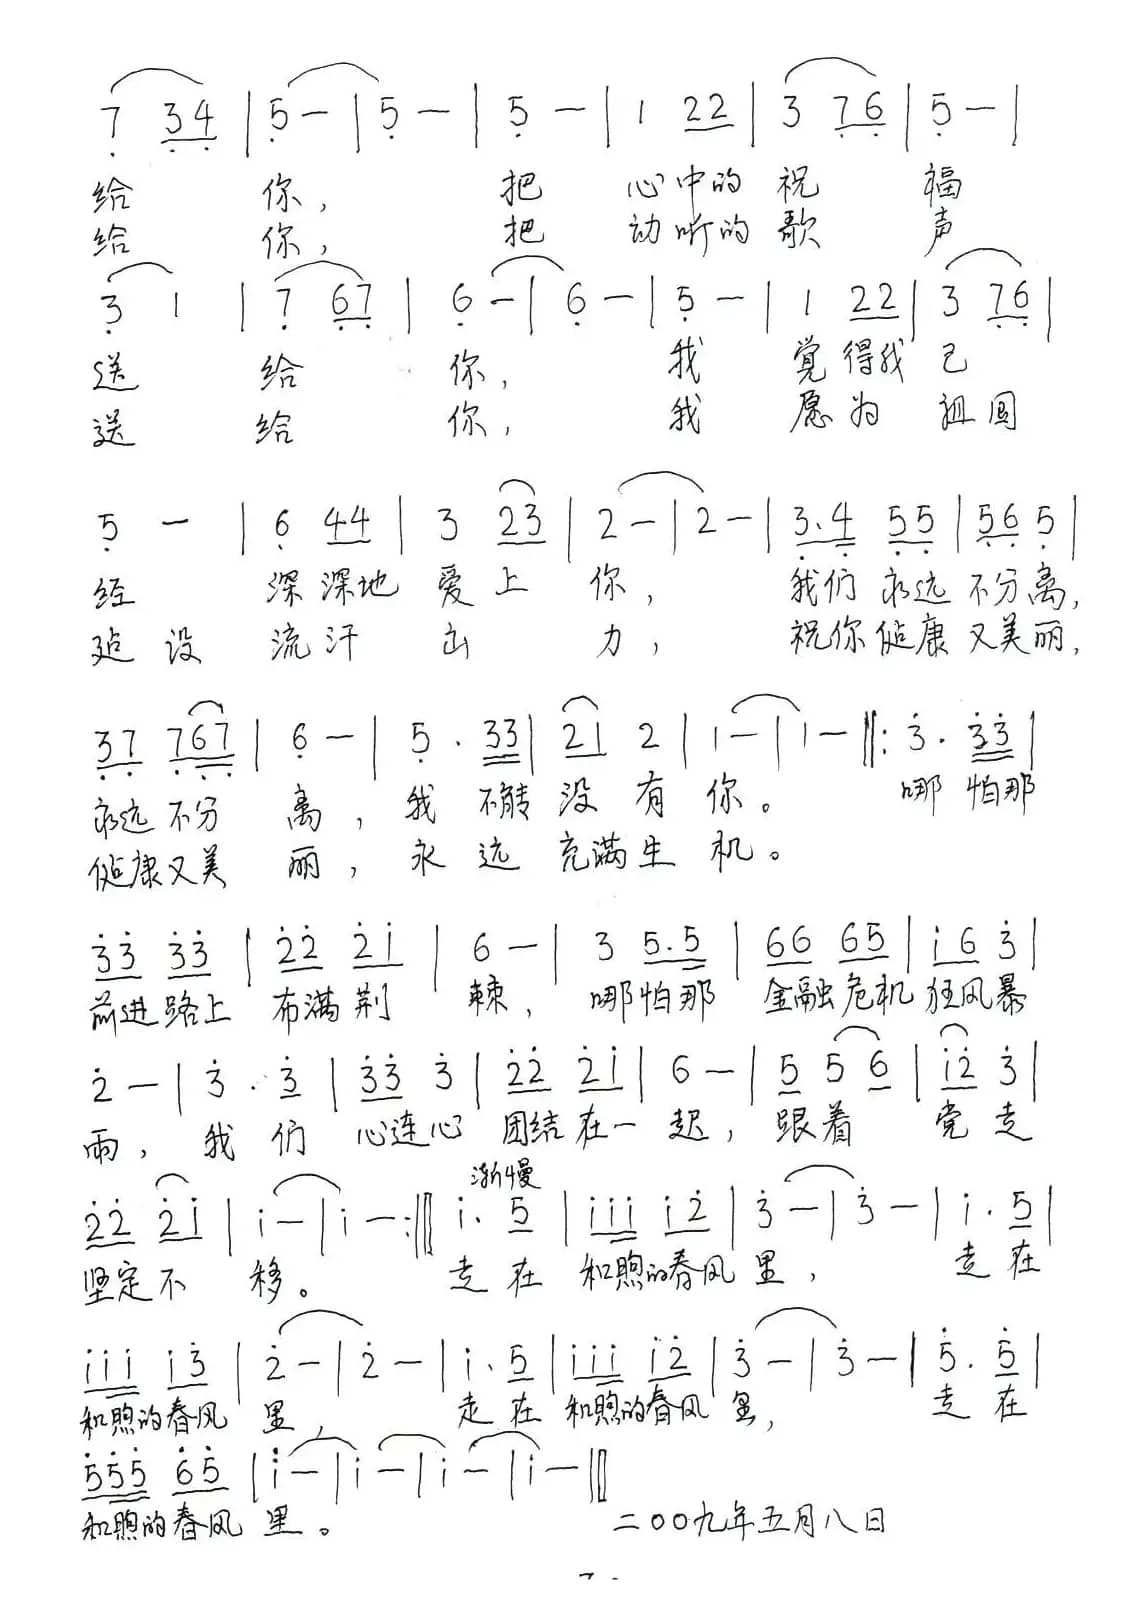 7 34 | 5 — | 5 — | 5 — | 1 22 | 3 76 | 5 — |
给 你, 把 心中的 祝 福
给 你, 把 动听的 歌 声
3 1 | 7 67 | 6 — | 6 — | 5 — | 1 22 | 3 76 |
送 给 你, 我 觉得我 已
送 给 你, 我 愿为 祖国
5 — | 6 44 | 3 23 | 2 — | 2 — | 3.4 55 | 56 5 |
经 深深地 爱上 你, 我们永远不分离,
建设 流汗 出 力, 祝你健康又美丽,
37 767 | 6 — | 5 . 33 | 21 2 | i — | i — ‖: 3 . 33 |
永远不分 离, 我 不能 没有 你。 哪 怕那
健康又美 丽, 永 远 充满生 机。
33 33 | 22 2i | 6 — | 3 5.5 | 66 65 | i6 3 |
前进路上 布满荆 棘, 哪怕那 金融危机 狂风暴
2 — | 3 . 3 | 33 3 | 22 2i | 6 — | 5 5 6 | i2 3 |
雨, 我 们 心连心 团结在一 起, 跟着 党 走
渐慢
22 2i | i — | i — :‖ i . 5 | iii i2 | 3 — | 3 — | i . 5 |
坚定不 移。 走 在 和煦的春风 里, 走 在
iii i3 | 2 — | 2 — | i . 5 | iii i2 | 3 — | 3 — | 5 . 5 |
和煦的春风 里, 走 在 和煦的春风 里, 走 在
555 65 | i — | i — | i — | i — ‖
和煦的春风 里。 二〇〇九年五月八日